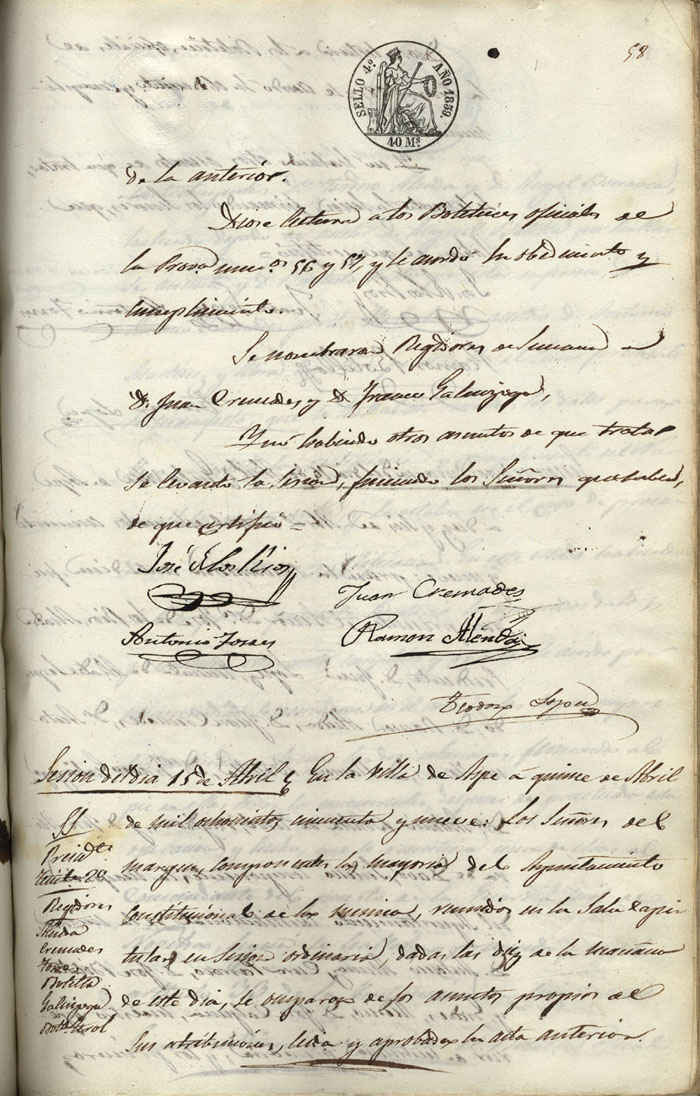 58
SELLO 4º AÑO 1859.
40 Ms
de la anterior.
Diose lectura a los Boletines oficiales de
la Prova num.os 56 y 57, y se acordo su obedimiento y
cumplimiento.
Se nombraron Regidores de Semana a
D. Juan Cremades y D. Franco Galinsoga,
Y no habiendo otros asuntos de que tratar
se levanto la sesion, firmando los Señores que saben,
de que certifico =
José de los Rios
Juan Cremades
Antonio Torres
Ramon
Teodoro Lopez
Sesion del dia 15 de Abril
En la Villa de Aspe á quince de Abril
SS
de mil ochocientos cincuenta y nueve: Los Señores del
Presidte
margen, componentes la mayoria del Ayuntamiento
Regidores
constitucional de la misma, reunidos en la Sala capi
Cremades
tular en sesion ordinaria, dadas las diez de la mañana
Torres
Botella
de este dia, se ocuparon de los asuntos propios de
Galinsoga
sus atribuciones, leida y aprobada el acta anterior.